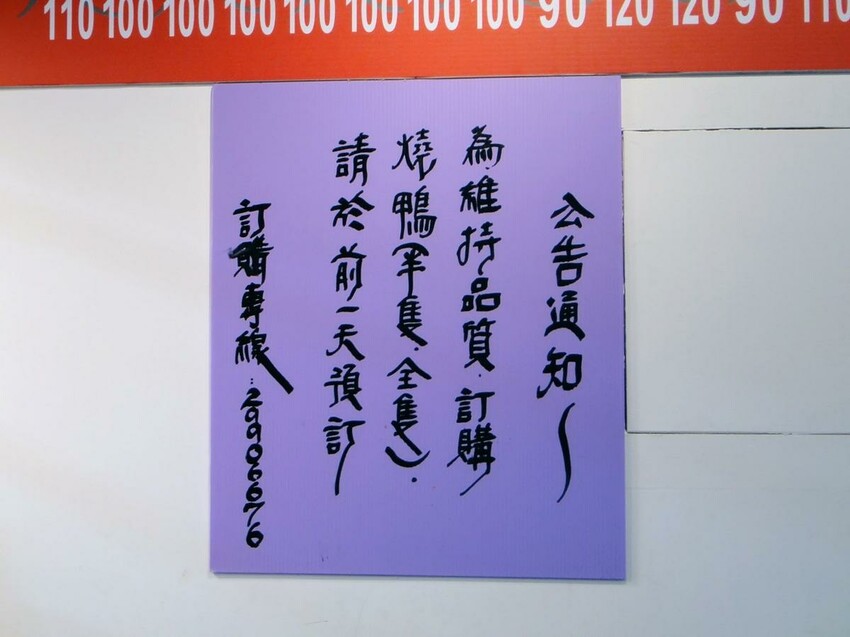 110 100 100 100 100 100 100 100 100 90 120 120 90 110
公告通知～
為維持品質．訂購
燒鴨（半隻．全隻）．
請於前一天預訂～
訂購專線：29906676